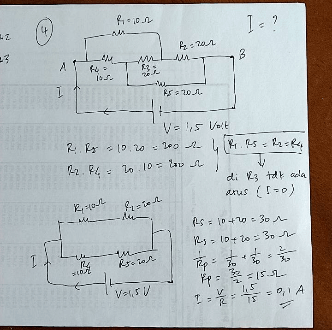 42
23
4
I = ?
R1=10Ω
R2=20Ω
A
B
R4=
10Ω
R3=
20Ω
R5=20Ω
I
V = 1,5 Volt
R1 . R5 = 10 . 20 = 200 Ω
R2 . R4 = 20 . 10 = 200 Ω
R1 . R5 = R2 = R4
di R3 tdk ada
arus (I=0)
R1=10Ω
R2=20Ω
R4
=10Ω
R5=20Ω
I
V=1,5 V
RS = 10 + 20 = 30 Ω
RS = 10 + 20 = 30 Ω
1/Rp = 1/30 + 1/30 = 2/30
Rp = 30/2 = 15 Ω
I = V/R = 1,5/15 = 0,1 A